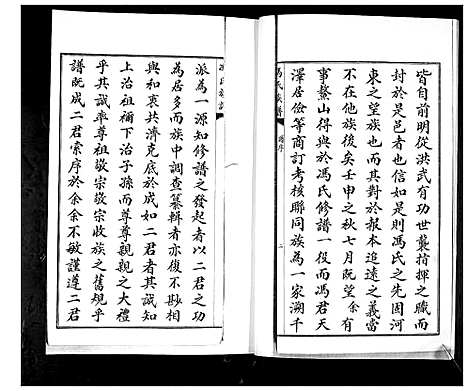 馮氏族譜
譜序
二
皆自前明從洪武有功世襲指揮之職而
封於是邑者也信如是則馮氏之先固河
東之望族也而其對於報本追遠之義當
不在他族後矣壬申之秋七月既望余有
事鰲山得與於馮氏修譜一役而馮君天
澤居儉等商訂考核聯同族為一家溯千
派為一源知修譜之發起者以二君之功
為居多而族中調查纂輯者亦復不尠相
與和衷共濟克底於成如二君者其誠知
上治祖禰下治子孫而尊尊親親之大禮
乎其誠率尊祖敬宗敬宗收族之舊規乎
譜既成二君索序於余余不敏謹遵二君